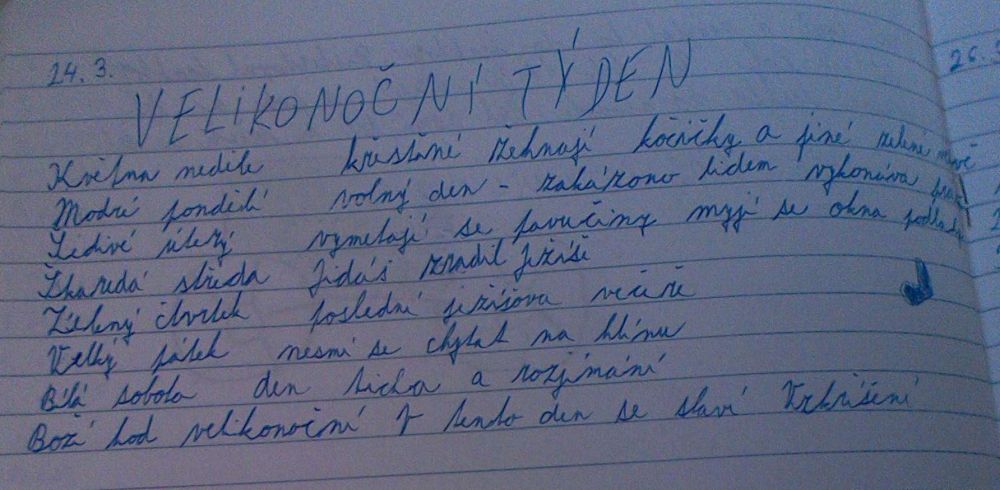 24.3.
26.
VELIKONOČNÍ TÝDEN
Května neděle křesťané žehnají kočičky a jiné zelené
Modré pondělí volný den - zakázano lidem vykonáva
Šedivé úterý vymetají se pavučiny myjí se okna podlahy
Škaredá středa Jidáš zradil Ježíše
Zelený čtvrtek poslední ježíšova večeře
Velký pátek nesmí se chytat na hlínu
Bílá sobota den ticha a rozjímání
Boží hod velikonoční V tento den se slaví Vzkříšení